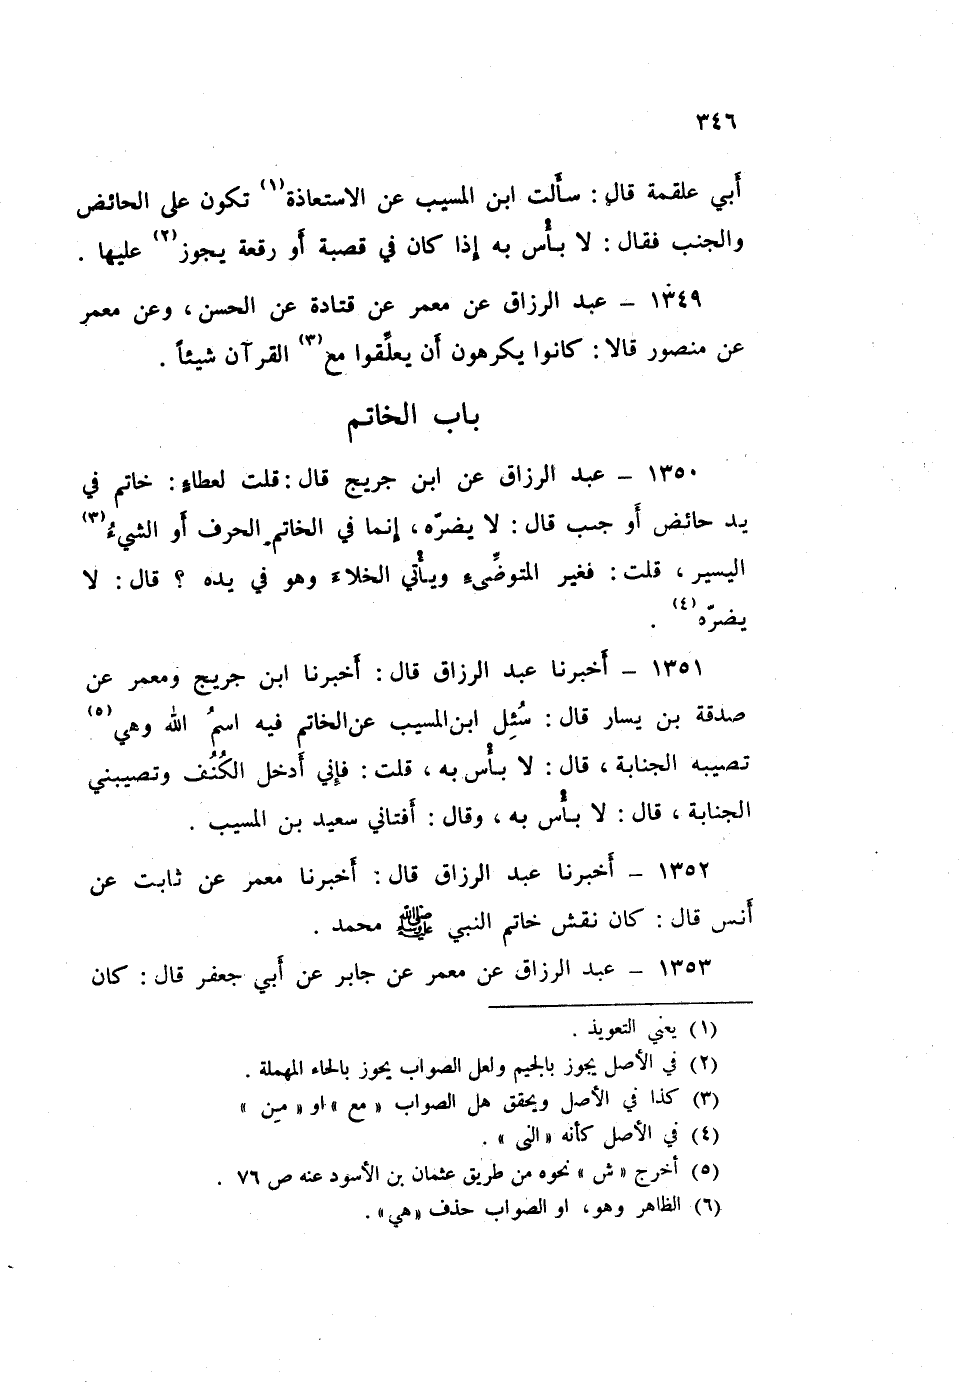 ٣٤٦
أَبي علقمة قال : سأَلت ابن المسيب عن الاستعاذة(١) تكون على الحائض
والجنب فقال : لا بأْس به إذا كان في قصبة أَو رقعة يجوز(٢) عليها .
١٣٤٩ – عبد الرزاق عن معمر عن قتادة عن الحسن ، وعن معمر
عن منصور قالا : كانوا يكرهون أَن يعلِّقوا مع(٣) القرآن شيئاً .
باب الخاتم
١٣٥٠ – عبد الرزاق عن ابن جريج قال : قلت لعطاءٍ : خاتم في
يد حائض أَو جنب قال : لا يضرّه ، إنما في الخاتم الحرف أَو الشيءُ(٣)
اليسير ، قلت : فغير المتوضِّىءِ ويأْتي الخلاءَ وهو في يده ؟ قال : لا
يضرّه(٤) .
١٣٥١ – أَخبرنا عبد الرزاق قال : أَخبرنا ابن جريج ومعمر عن
صدقة بن يسار قال : سُئِل ابن المسيب عن الخاتم فيه اسمُ الله وهي(٥)
تصيبه الجنابة ، قال : لا بأْس به ، قلت : فإني أَدخل الكُنُف وتصيبني
الجنابة ، قال : لا بأْس به ، وقال : أَفتاني سعيد بن المسيب .
١٣٥٢ – أَخبرنا عبد الرزاق قال : أَخبرنا معمر عن ثابت عن
أَنس قال : كان نقش خاتم النبي ﷺ محمد .
١٣٥٣ – عبد الرزاق عن معمر عن جابر عن أَبي جعفر قال : كان
(١) يعني التعويذ .
(٢) في الأصل يجوز بالجيم ولعل الصواب يحوز بالحاء المهملة .
(٣) كذا في الأصل ويحقق هل الصواب « مع » او « مِن »
(٤) في الأصل كأنه « النى » .
(٥) أخرج « ش » نحوه من طريق عثمان بن الأسود عنه ص ٧٦ .
(٦) الظاهر وهو ، او الصواب حذف « هي » .